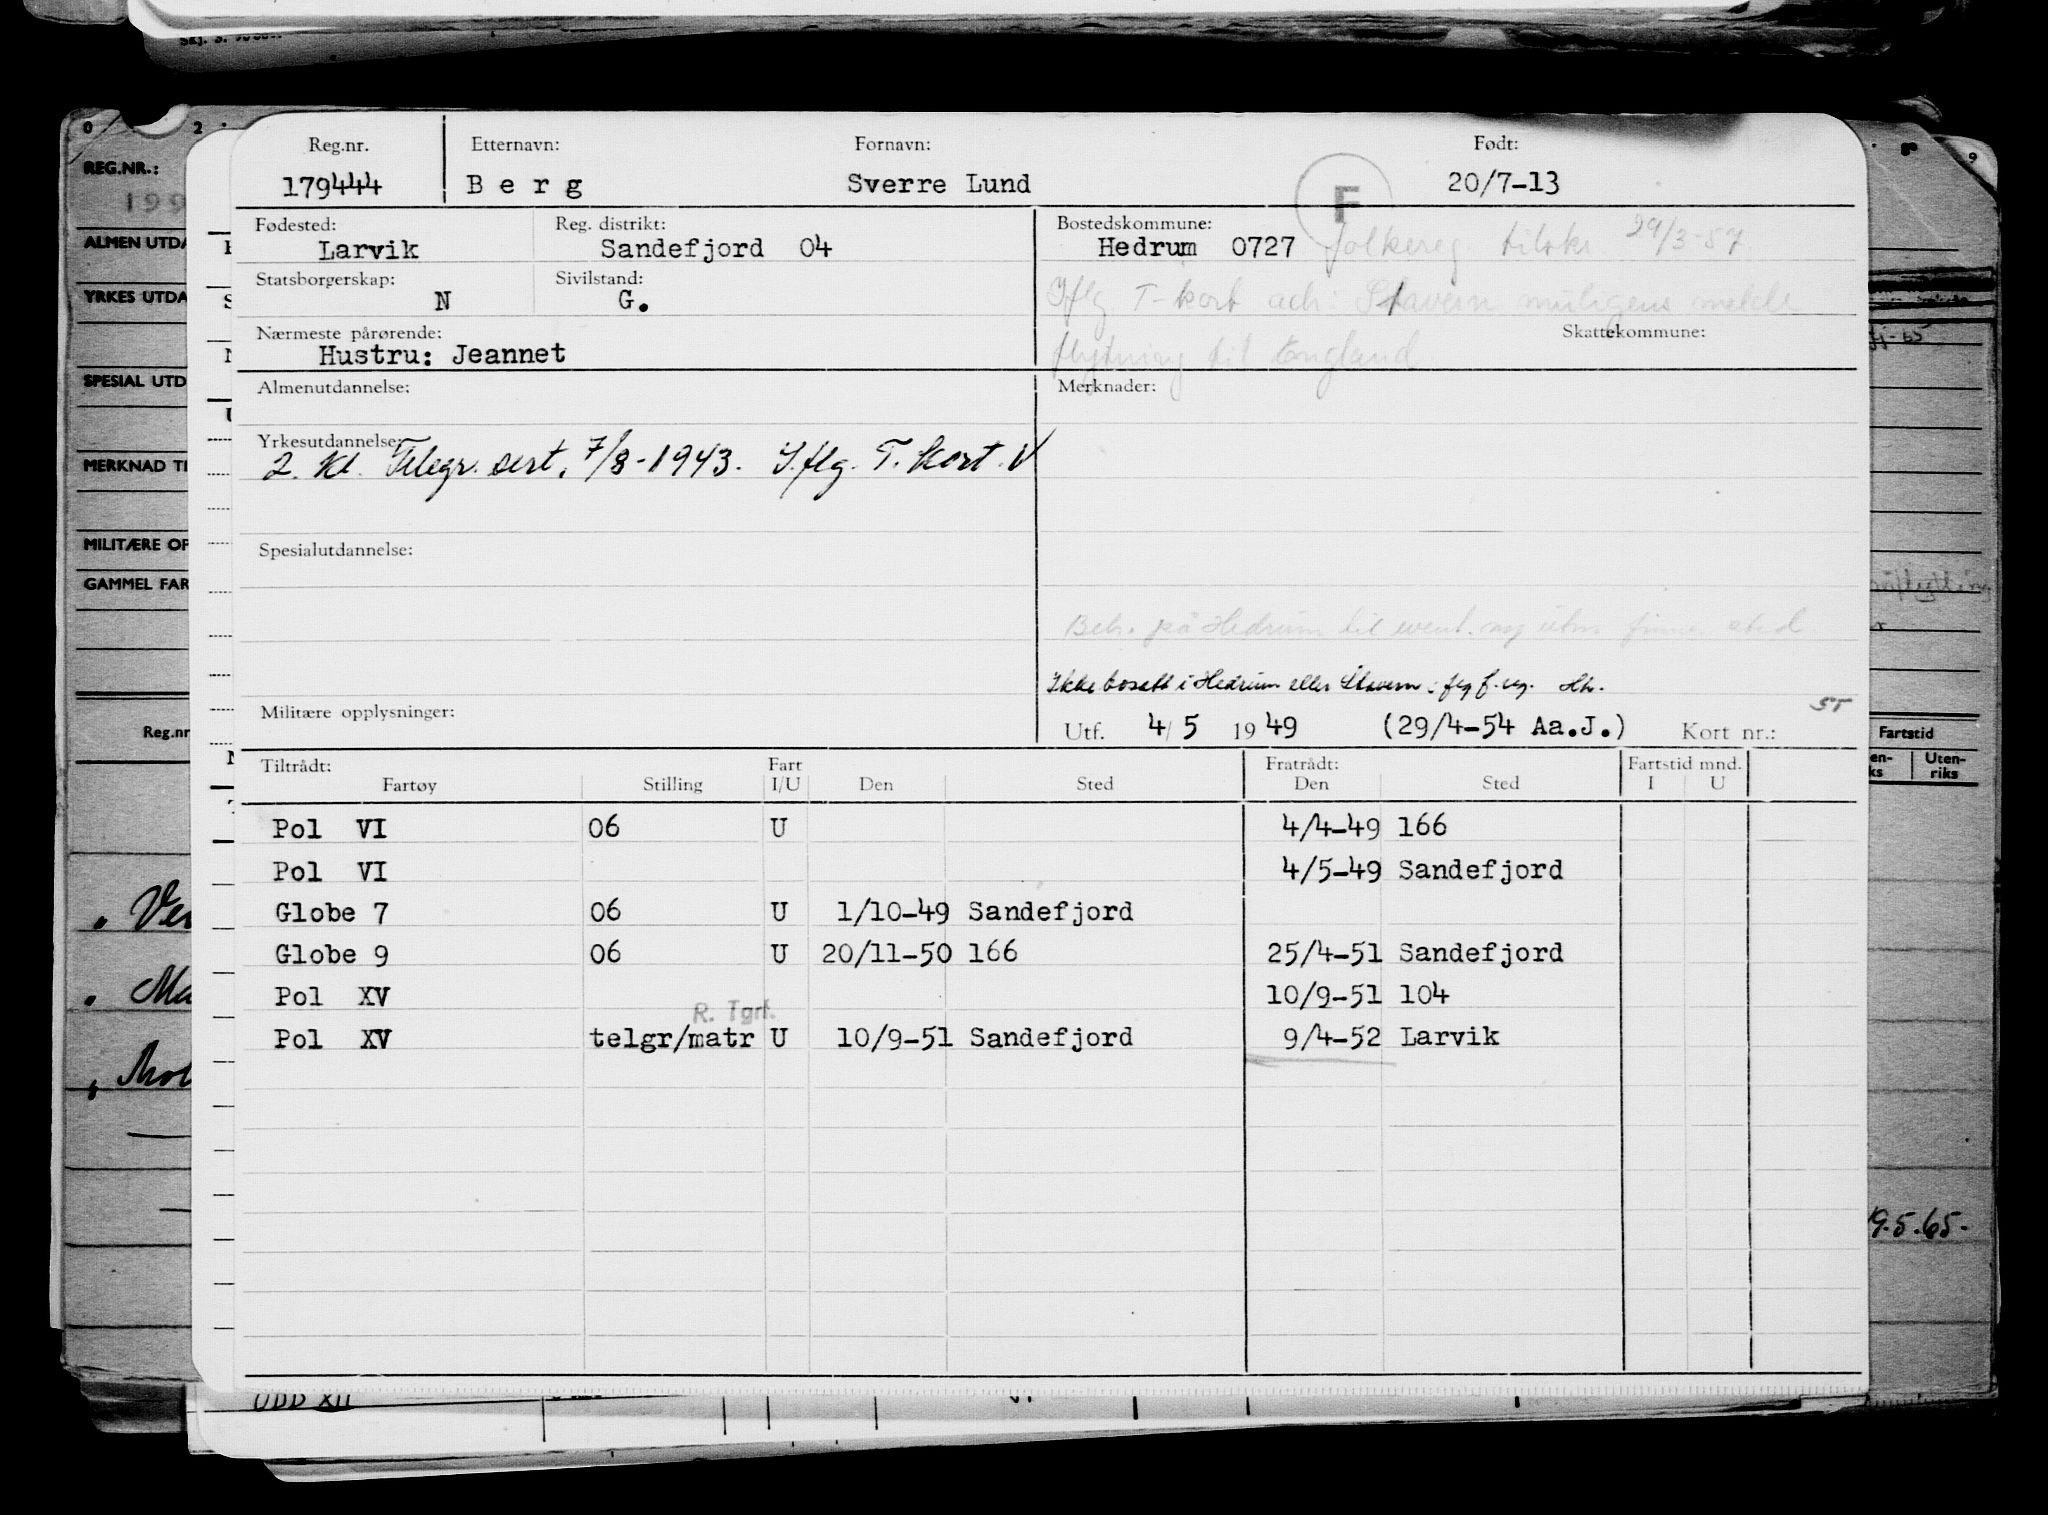 Skj. S.
0 2 9
REG.NR.:
199
ALMEN UTDA
YRKES UTDA
SPECIAL UTD
MERKNAD TI
MILITÆRE OP
GAMMEL FAR
Reg.nr
Reg.nr. Etternavn: Fornavn: Født:
179444 Berg Sverre Lund F 20/7-13
Fødested: Reg. distrikt: Bostedskommune:
Larvik Sandefjord 04 Hedrum 0727 folkereg tilskr 29/3-57.
Statsborgerskap: Sivilstand:
N G. Iflg T-kort adr. Stavern muligens melde
Nærmeste pårørende: Skattekommune:
Hustru: Jeannet flytning til England
Almenutdannelse: Merknader:
Yrkesutdannelse:
2. kl. Telegr. sert. 7/8-1943. Iflg. T. kort. V
Spesialutdannelse:
Beh. på Hedrum til event. finner sted
Ikke bosatt i Hedrum eller Stavern iflg f. reg. Hh.
Militære opplysninger: ST
Utf. 4/5 1949 (29/4-54 Aa.J.) Kort nr.:
Tiltrådt: Fart Fratrådt: Fartstid mnd.
Fartøy Stilling I/U Den Sted Den Sted I U
Pol VI 06 U 4/4-49 166
Pol VI 4/5-49 Sandefjord
Globe 7 06 U 1/10-49 Sandefjord
Globe 9 06 U 20/11-50 166 25/4-51 Sandefjord
Pol XV 10/9-51 104
R. Tgrf.
Pol XV telgr/matr U 10/9-51 Sandefjord 9/4-52 Larvik
Fartstid
Uten-
riks
19.5.65.
ODD XII